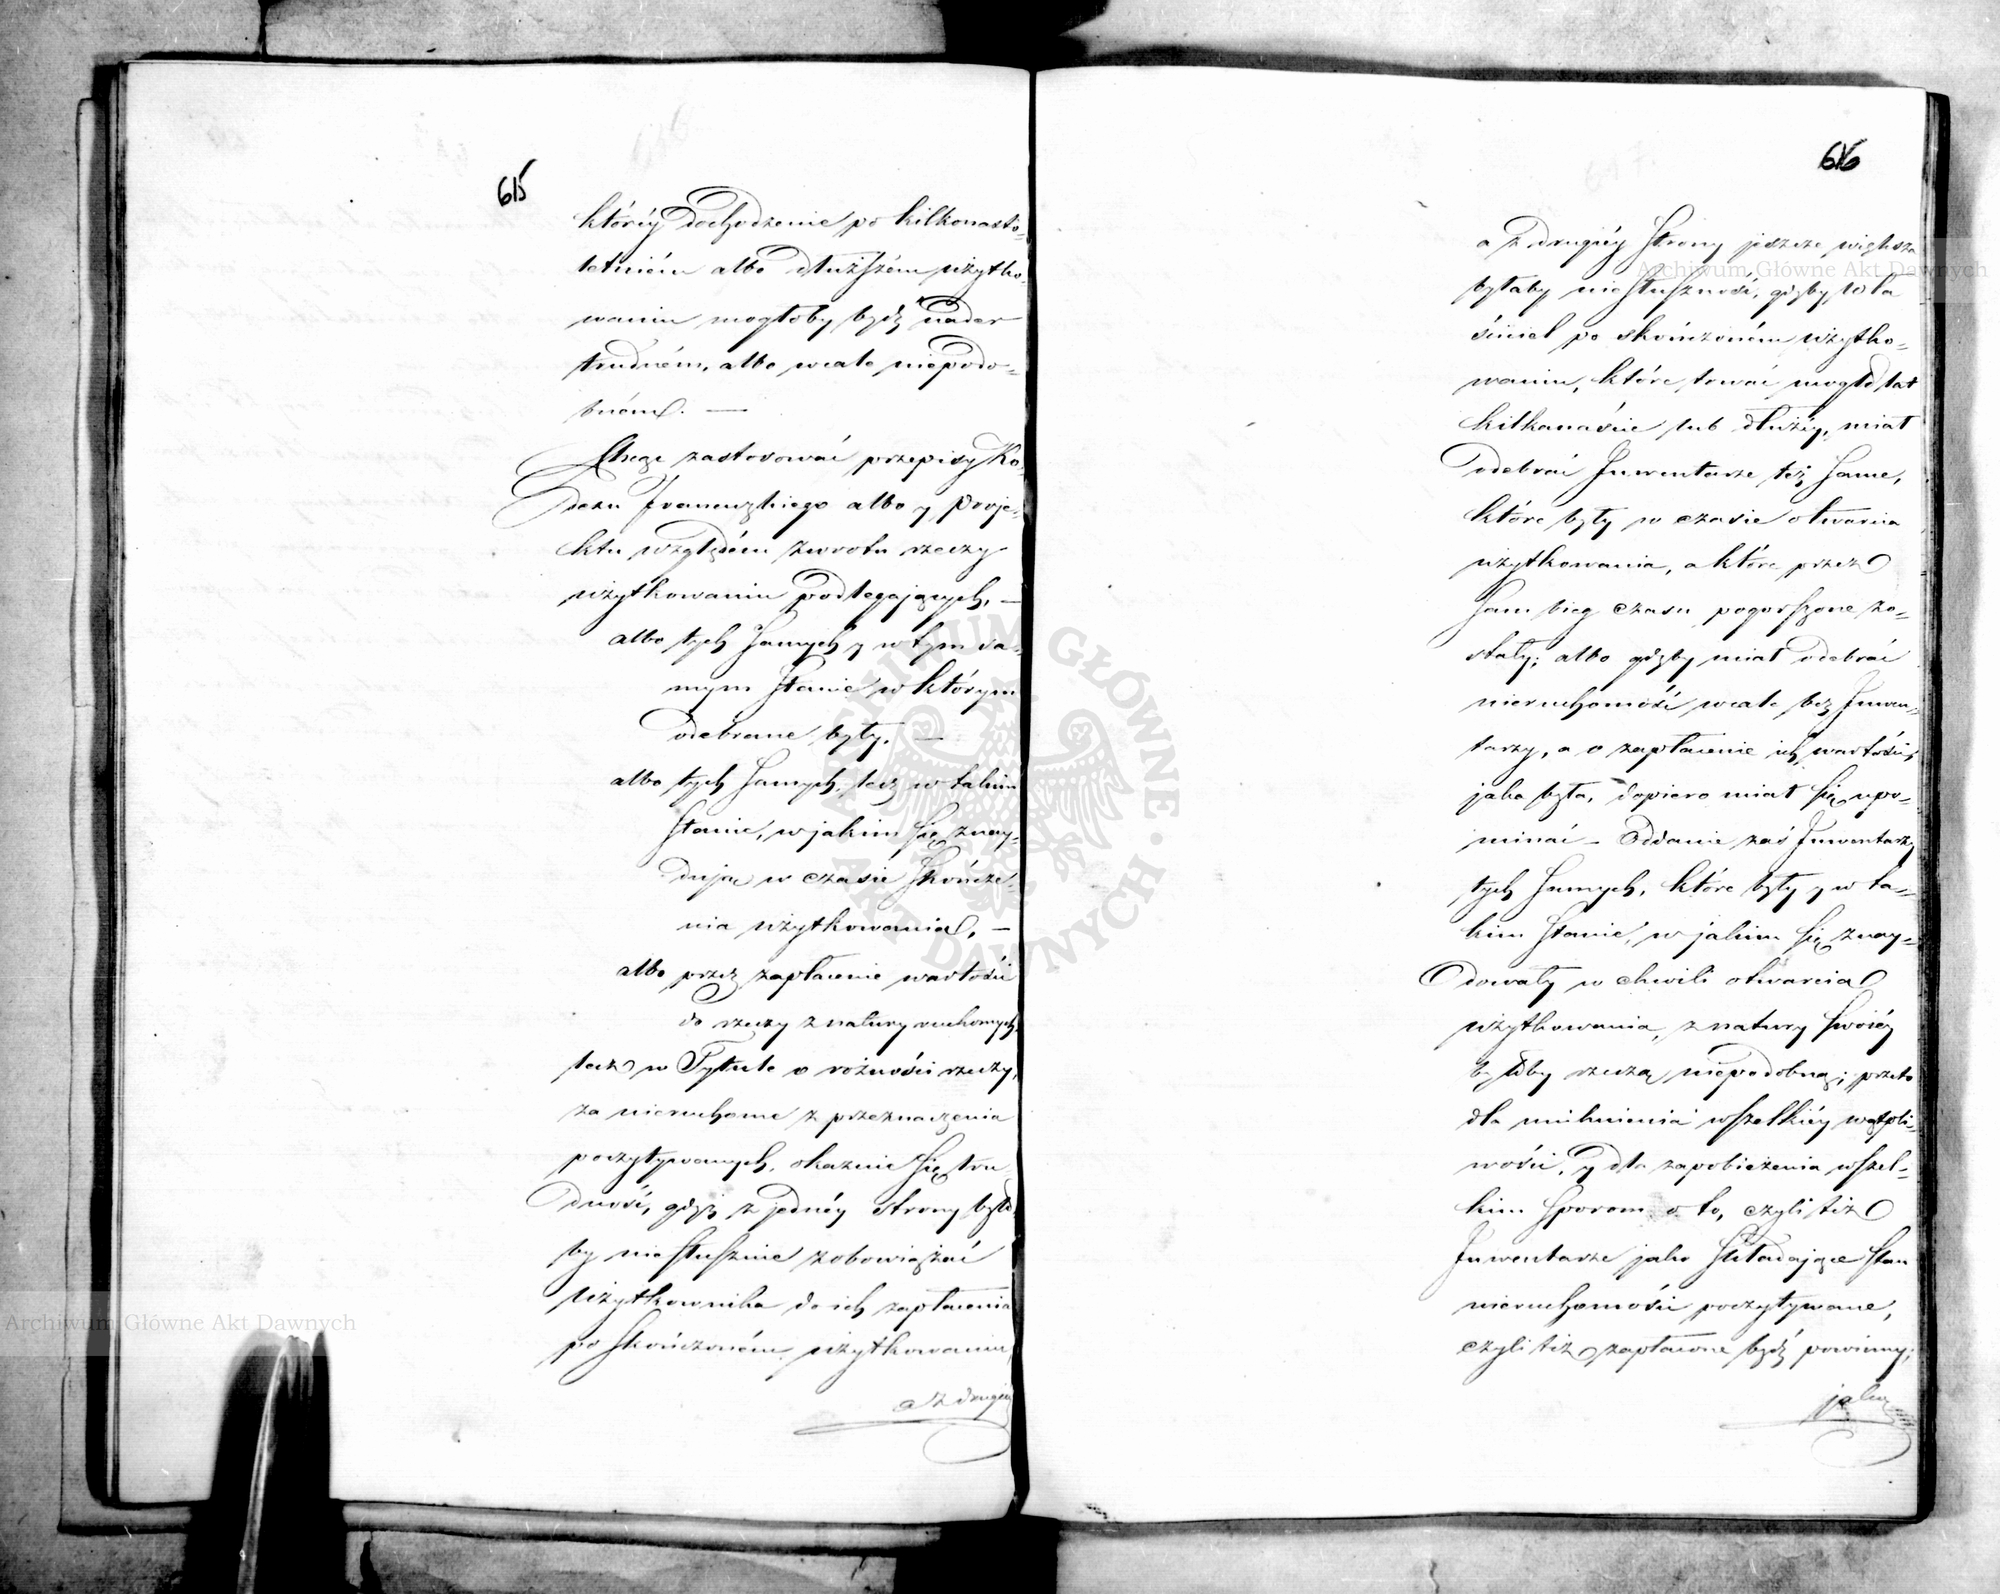 615
któréy dochodzenie po kilkonasto-
letniém albo dłuższém użytko-
waniu mogłoby bydź nader
trudném, albo wcale niepodo-
bném. —
Chcąc zastosować przepisy Ko-
dexu Francuzkiego albo y Proje-
ktu względem zwrotu rzeczy
użytkowaniu podlegających, —
albo tych samych y w tym sa-
mym stanie w którym
odebrane były, —
albo tych samych, lecz w takim
stanie, w jakim się znay-
dują w czasie skończe-
nia użytkowania, —
albo przez zapłacenie wartości
do rzeczy z natury ruchomych,
lecz w Tytule o rożności rzeczy,
za nieruchome z przeznaczenia
poczytywanych, okaznie się tru
dność, gdyż z jednéy strony było
by niesłusznie zobowiązać
użytkownika do ich zapłacenia
po skończoném użytkowaniu,
a z drugiéy
616
a z drugiéy strony jeszcze większa
byłaby niesłuszność, gdyby wła
ściciel po skończoném użytko-
waniu, które trwać mogło lat
kilkanaście lub dłużéy, miał
odebrać Inwentarze też same,
które były w czasie otwarcia
użytkowania, a które przez
sam bieg czasu pogorszone zo-
stały; albo gdyby miał odebrać
nieruchomość wcale bez Inwen-
tarzy, a o zapłacenie ich wartości,
jaka była, dopiero miał się upo-
minać – Oddanie zaś Inwentarzy
tych samych, które były y w ta-
kim stanie, w jakim się znay-
dowały w chwili otwarcia
użytkowania, z natury swoiéy
byłoby rzeczą niepodobną; przeto
dla uniknienia wszelkiéy wątpli-
wości, y dla zapobieżenia wszel-
kim sporom o to, czyli też
Inwentarze jako składające stan
nieruchomości poczytywane,
czyli też zapłacone bydź powinny;
jaką
Archiwum Główne Akt Dawnych
Archiwum Główne Akt Dawnych
ARCHIWUM GŁÓWNE · AKT DAWNYCH ·